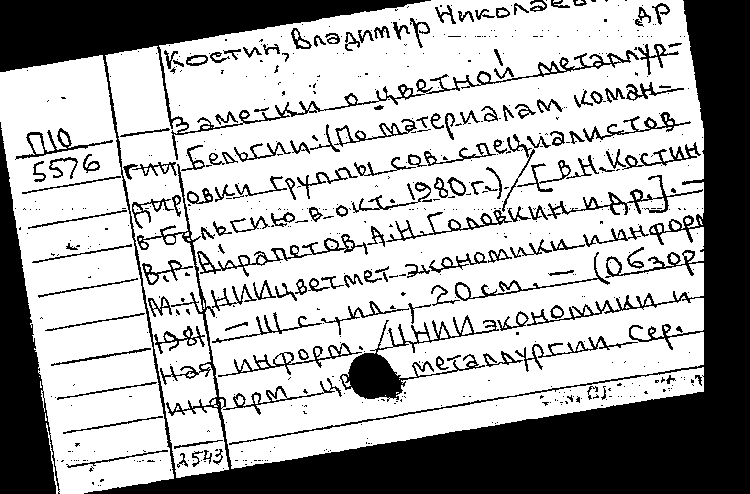 Костин, Владимир Николаев
др
Заметки о цветной металлур-
П10
5576
гии Бельгии: (По материалам коман-
дировки группы сов. специалистов
в Бельгию в окт. 1980г.) / [В.Н. Костин,
В.Р. Айрапетов, А.Н. Головкин и др.]. —
М.: ЦНИИцветмет экономики и информ
1981. — 111 с., ил.; 20 см. — (Обзор-
ная информ. / ЦНИИ экономики и
информ. металлургии. Сер.
2543